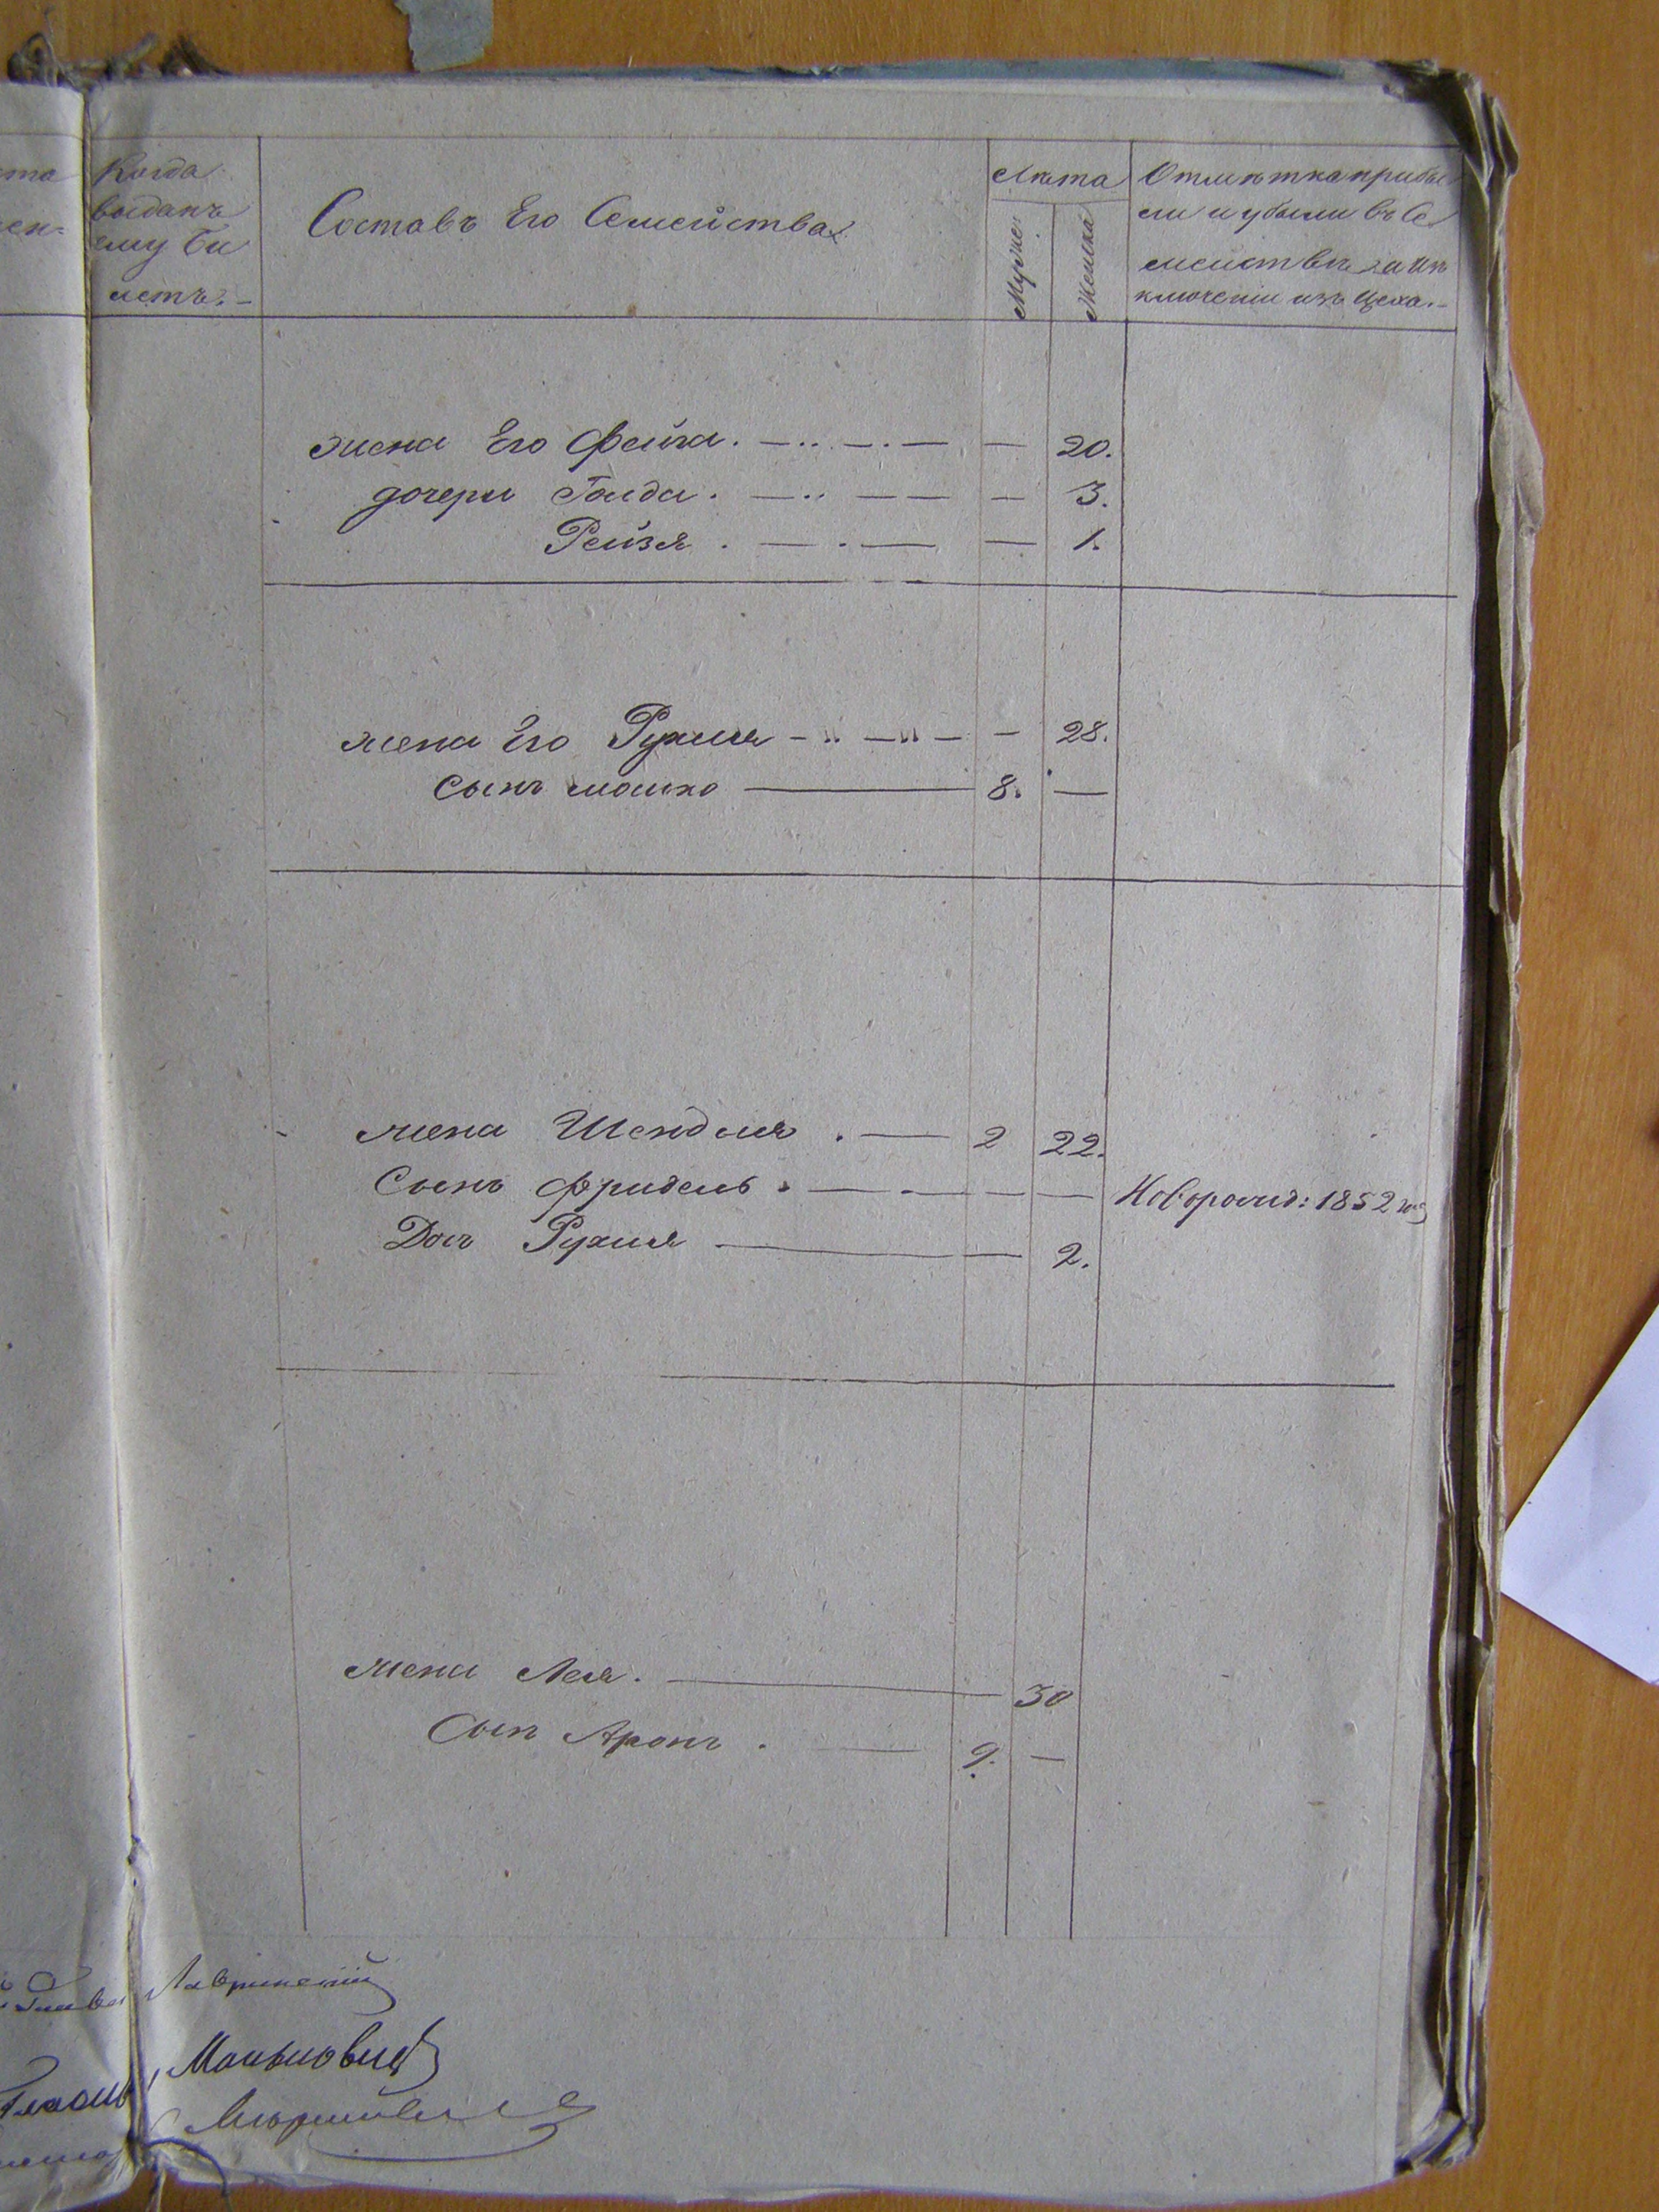 Когда
выданъ
ему Би
летъ.-
Составъ Его Семейства
Лѣта
Мужс:
Женска
Отмѣтка прибы
ли и убыли въ Се
мействѣ и ис
ключении изъ Цеха.-
жена Его Фейга. — 20.
дочери Голда. — 3.
Рейзя. — 1.
жена Его Рухля — 28.
Сынъ мошко — 8. —
жена Шендля. — 2 22.
Сынъ Фридель. — —Новорожд: 1852 год
Доч Рухля — 2.
жена Лея. — 30
Сын Аронъ. — 9. —
Лавринский